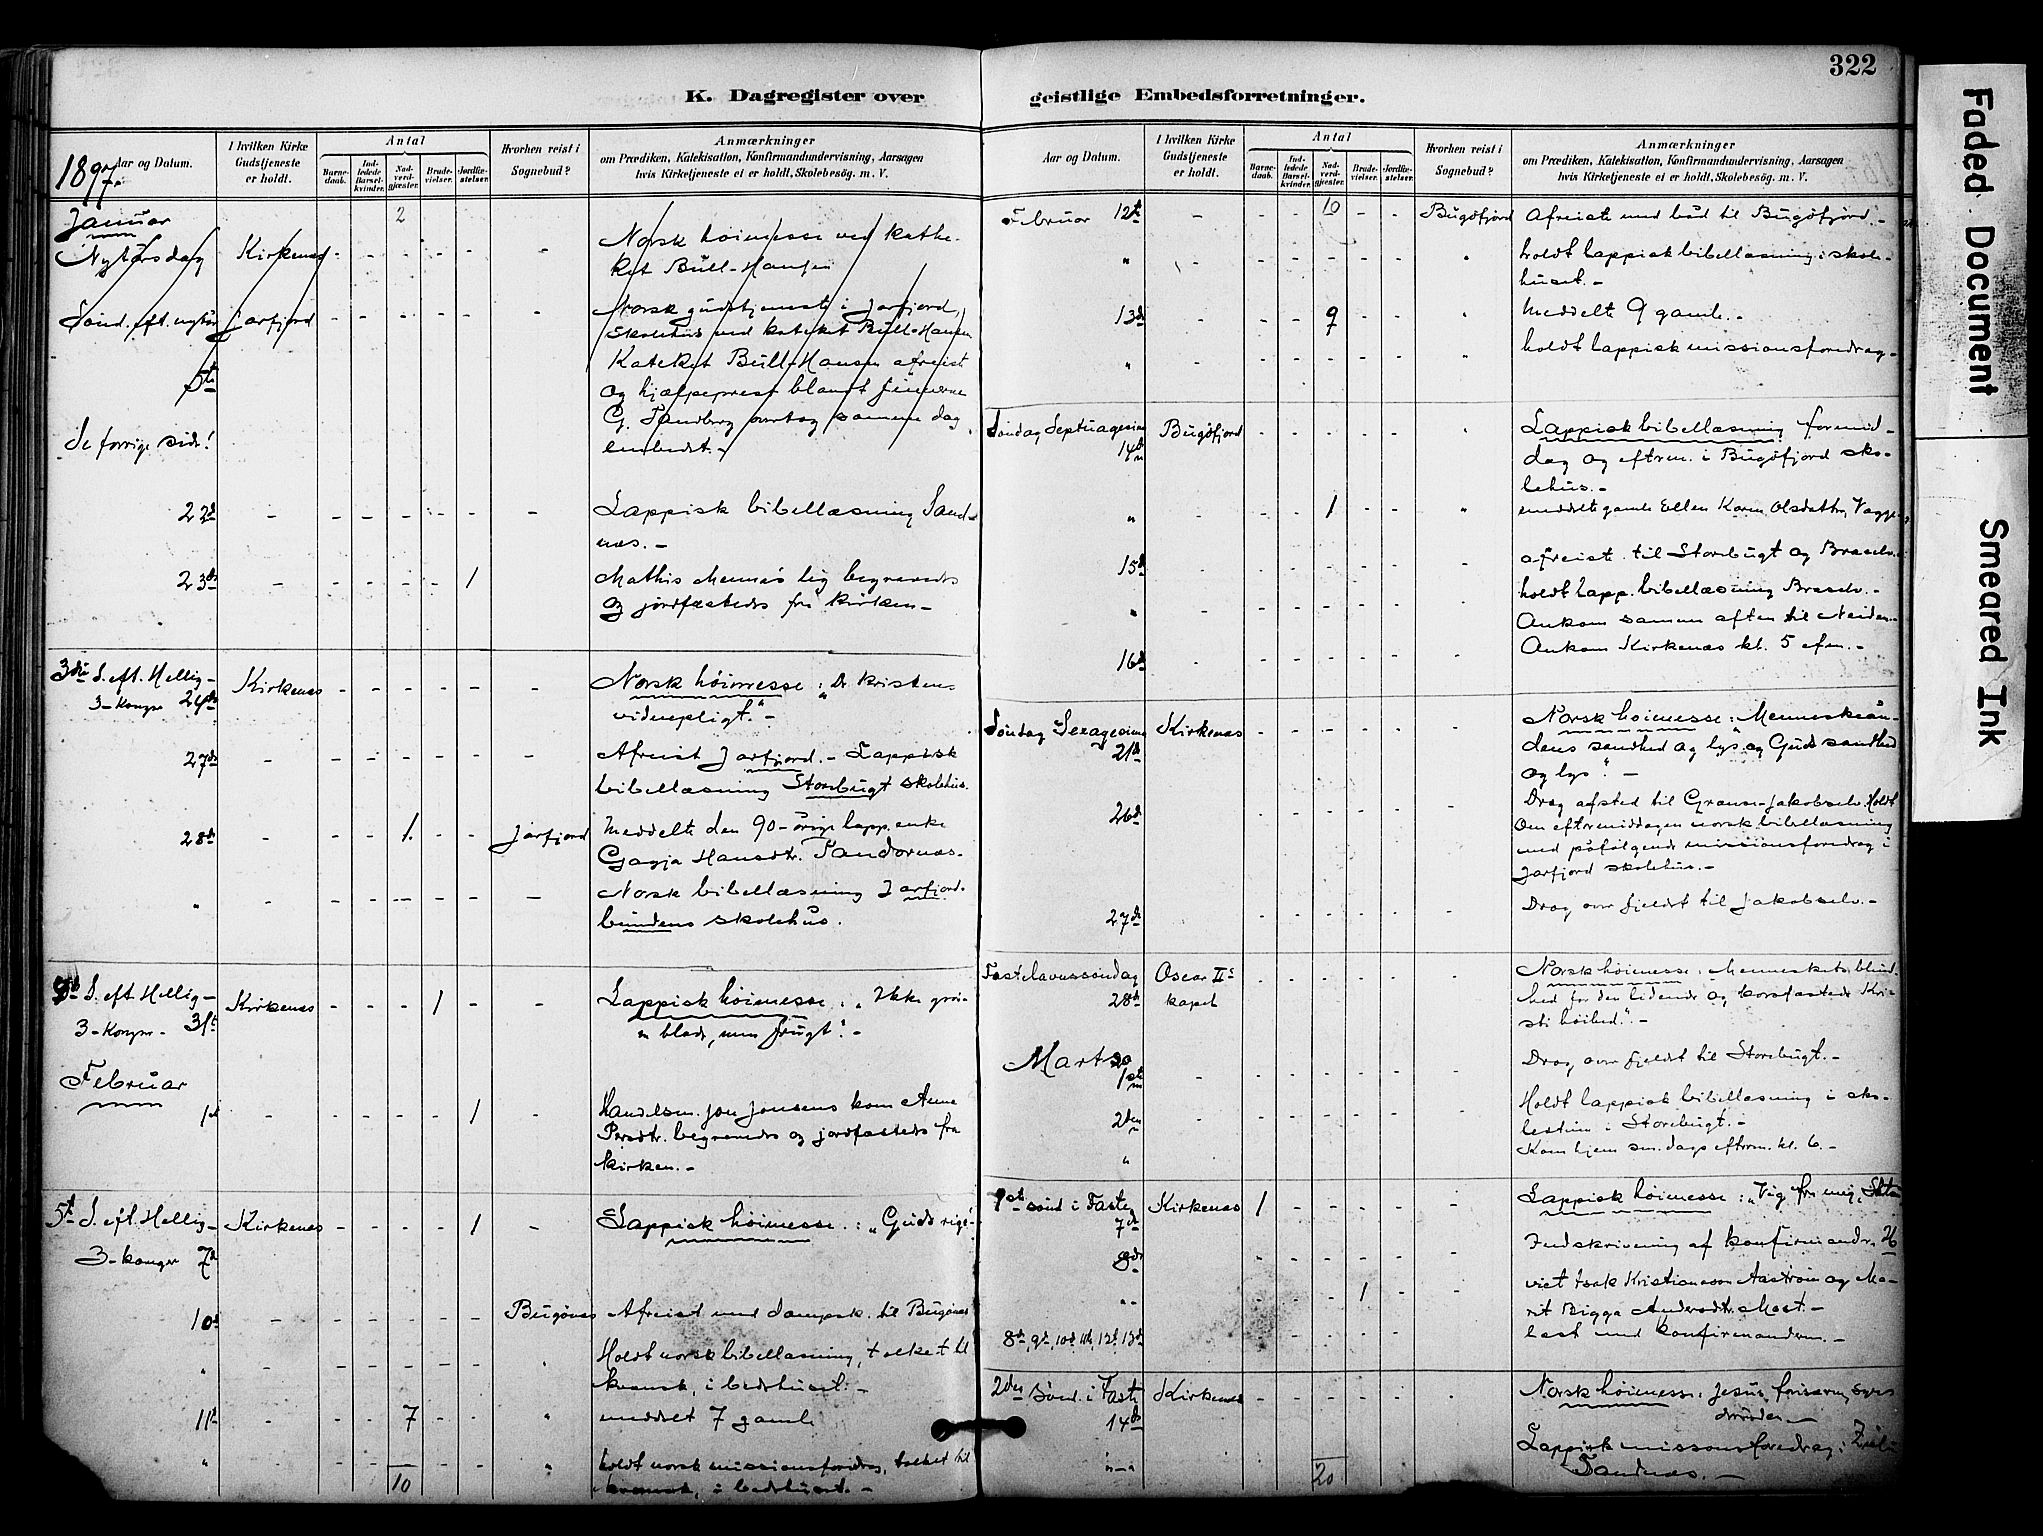 322
K. Dagregister over geistlige Embedsforretninger.
Faded Document
Smeared Ink
1897.
Aar og Datum.
I hvilken Kirke Gudstjeneste er holdt.
Antal
Barnedaab.
Indledede Barselkvinder.
Nadverdgjæster.
Brudevielser.
Jordfæstelser.
Hvorhen reist i Sognebud?
Anmærkninger
om Prædiken, Katekisation, Konfirmandundervisning, Aarsagen
hvis Kirketjeneste ei er holdt, Skolebesøg. m. V.
Januar 2
Nytårsdag Kirkenes - - - - - - Norsk høimesse ved kathe-
ket Bull-Hansen
Sönd. eft. nytår Jarfjord - - - - - - Norsk gudstjeneste i Jarfjord,
Skolehus ved kateket Bull-Hansen
5te Kateket Bull-Hansen afreist
og hjælpeprest blandt finnerne
G. Sandberg overtog samme dag
Se forrige side! embedet.-
22d - - - - - - - Lappisk bibellæsning Sand-
næs.-
23de - - - - - 1 Mathis lig begravedes
og jordfæstedes fra kirken-
3die S. eft. Hellig-
3-konger 24de Kirkenæs - - - - - - Norsk høimesse: "De kristens
vidnepligt."-
27de - - - - - - - Afreist Jarfjord.- Lappisk
bibellæsning Storebugt skolehus.
28de - - - 1. - - Jarfjord Meddelte den 90-årige lapp. enke
Gagja Hansdtr. Sandornæs.
" - - - - - - - Norsk bibellæsning Jarfjord-
bundens skolehus.
4de S. eft Hellig-
3-konger- 31te Kirkenæs - - - 1 - - Lappisk høimesse: "Ikke grøn-
ne blade, men frugt".-
Februar
1st - - - - - 1 - Handelsm. Jon Jonsens kone Anne
Persdtr. begravedes og jordfæstedes fra
kirken.-
5te S. eft. Hellig-
3-konger 7de Kirkenæs - - - - 1 - Lappisk høimesse: "Guds rige".
10de - - - - - - Bugönæs Afreist med dampsk. til Bugönæs
" - - - - - - " Holdt norsk bibellæsning, tolket til
kvensk, i bedehuset.-
11te - - - 7 - - " meddelt 7 gamle
" - - - - - - " holdt norsk missionsforedrag, tolket til
10 kvensk, i bedehuset.-
Aar og Datum.
I hvilken Kirke Gudstjeneste er holdt.
Antal
Barnedaab.
Indledede Barselkvinder.
Nadverdgjæster.
Brudevielser.
Jordfæstelser.
Hvorhen reist i Sognebud?
Anmærkninger
om Prædiken, Katekisation, Konfirmandundervisning, Aarsagen
hvis Kirketjeneste ei er holdt, Skolebesøg. m. V.
Februar 12te - - - 10 - - Bugöfjord Afreiste med båd til Bugöfjord.-
" - - - - - - " holdt lappisk bibellæsning i skole-
huset.-
13de - - - 9 - - " Meddelte 9 gamle.-
" - - - - - " holdt lappisk missionsforedrag-
Söndag Septuagesima
14de Bugöfjord - - - - - " Lappisk bibellæsning formid-
dag og efterm. i Bugöfjord sko-
lehus.-
" - - 1 - - " meddelte gamle Ellen Karin Olsdatter, Vagge
15de - - - - - - - afreiste til Storebugt og Braselv.
holdt lapp. bibellæsning Braselv.-
" - - - - - - - Ankom samme aften til Neiden.-
16de - - - - - - - Ankom Kirkenæs kl. 5 efm.-
Söndag Sexagesima
21de Kirkenæs - - - - - - Norsk høimesse: "Menneskeån-
dens sandhed og lys og Guds sandhed
og lys".-
26de - - - - - - Drog afsted til Grænse-Jakobselv. Holdt
om eftermiddagen norsk bibellæsning
med påfølgende missionsforedrag i
Jarfjord skolehus.-
27de - - - - - - Drog over fjeldet til Jakobselv.-
Fastelavnssöndag
28de Oscar IIs
kapel - - - - - - Norsk høimesse: "Menneskets blind-
hed for den lidende og korsfæstede Kri-
sti høihed".-
Marts
1ste - - - - - - - Drog over fjeldet til Storebugt.-
2den - - - - - - - Holdt lappisk bibellæsning i sko-
lestuen i Storebugt.-
" Kom hjem sm. dags efterm. kl. 6.-
1ste sönd i Faste
7de Kirkenæs 1 - - - - - Lappisk høimesse: "Vig fra mig, Satan
8de - - - - - - Indskrivning af konfirmander, 26
"- - - - 1 - - viet Isak Kristiansson Aaström og Ma-
rit Bigga Andersdtr. Most.-
8de, 9de, 10de, 11te, 12te, 13de - - - - læst med konfirmanderne.-
2den Sönd. i Faste
14de Kirkenæs - - - - - - Norsk høimesse:
Lappisk missionsforedrag i
"-" 20 Sandnæs.-